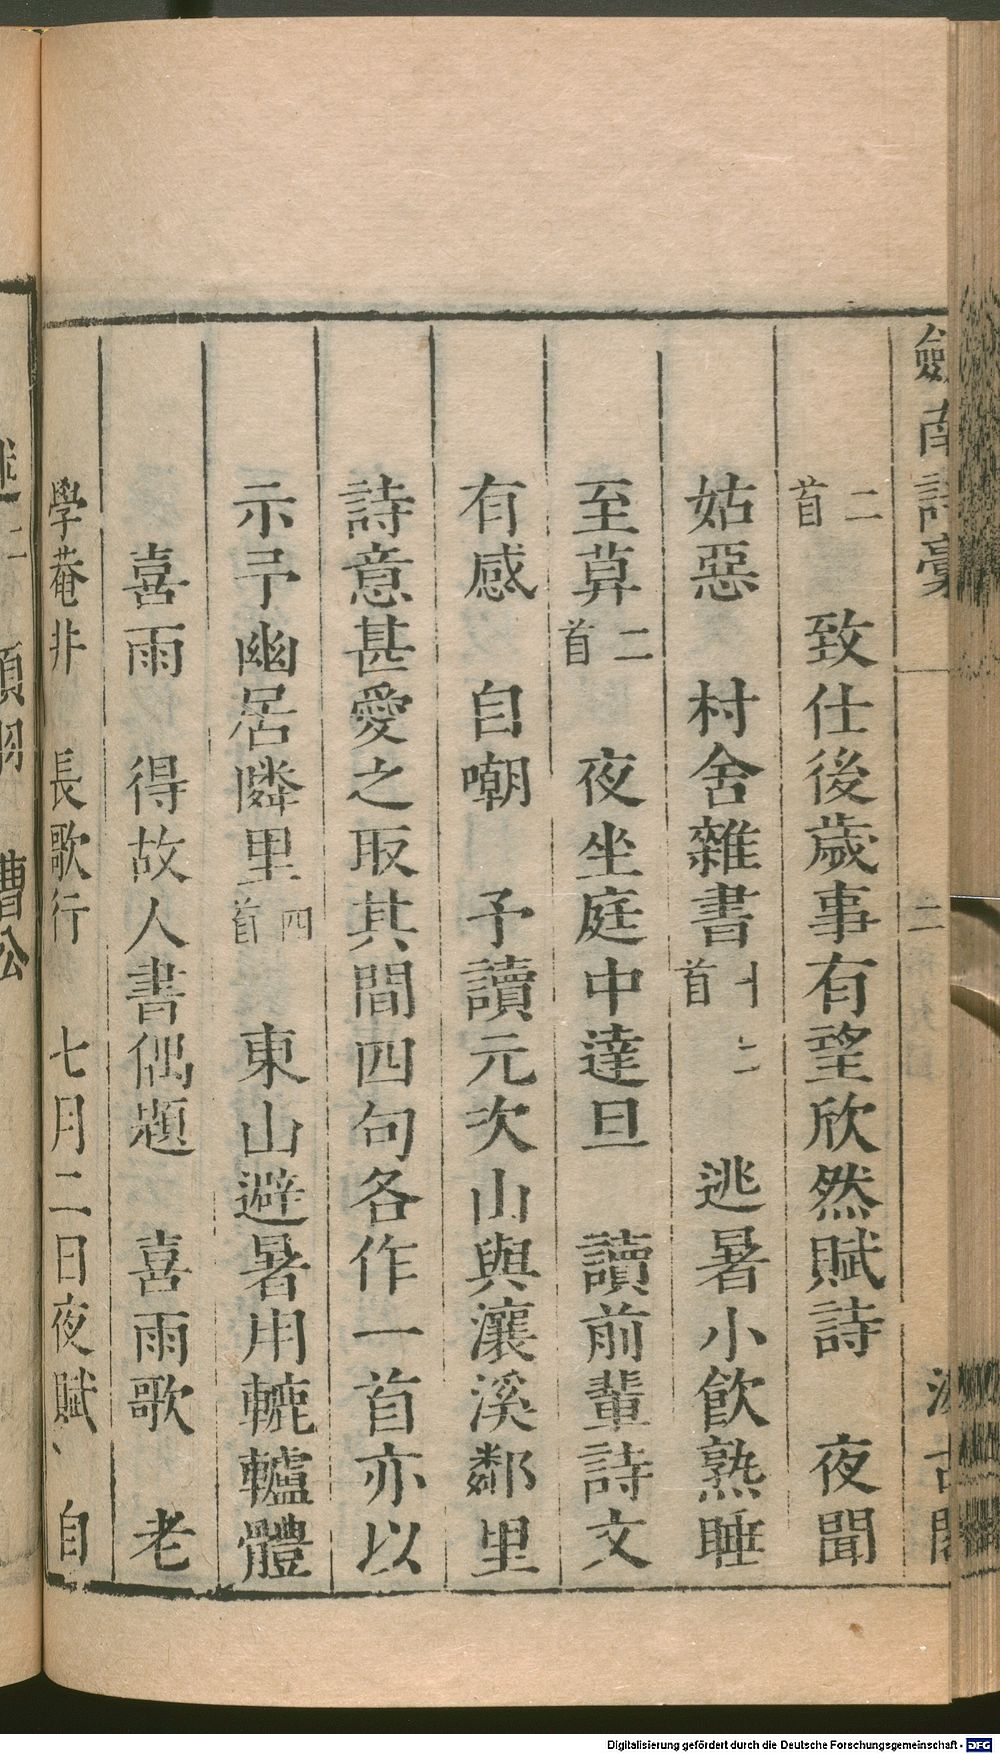 劔南詩藁 二 汲古閣
二首 致仕後歲事有望欣然賦詩 夜聞
姑惡 村舍雜書十二首 逃暑小飲熟睡
至草二首 夜坐庭中達旦 讀前輩詩文
有感 自嘲 予讀元次山與瀼溪鄰里
詩意甚愛之取其間四句各作一首亦以
示予幽居隣里四首 東山避暑用轆轤體
喜雨 得故人書偶題 喜雨歌 老
學菴非 長歌行 七月二日夜賦 自
二 項羽 曹公
Digitalisierung gefördert durch die Deutsche Forschungsgemeinschaft - DFG